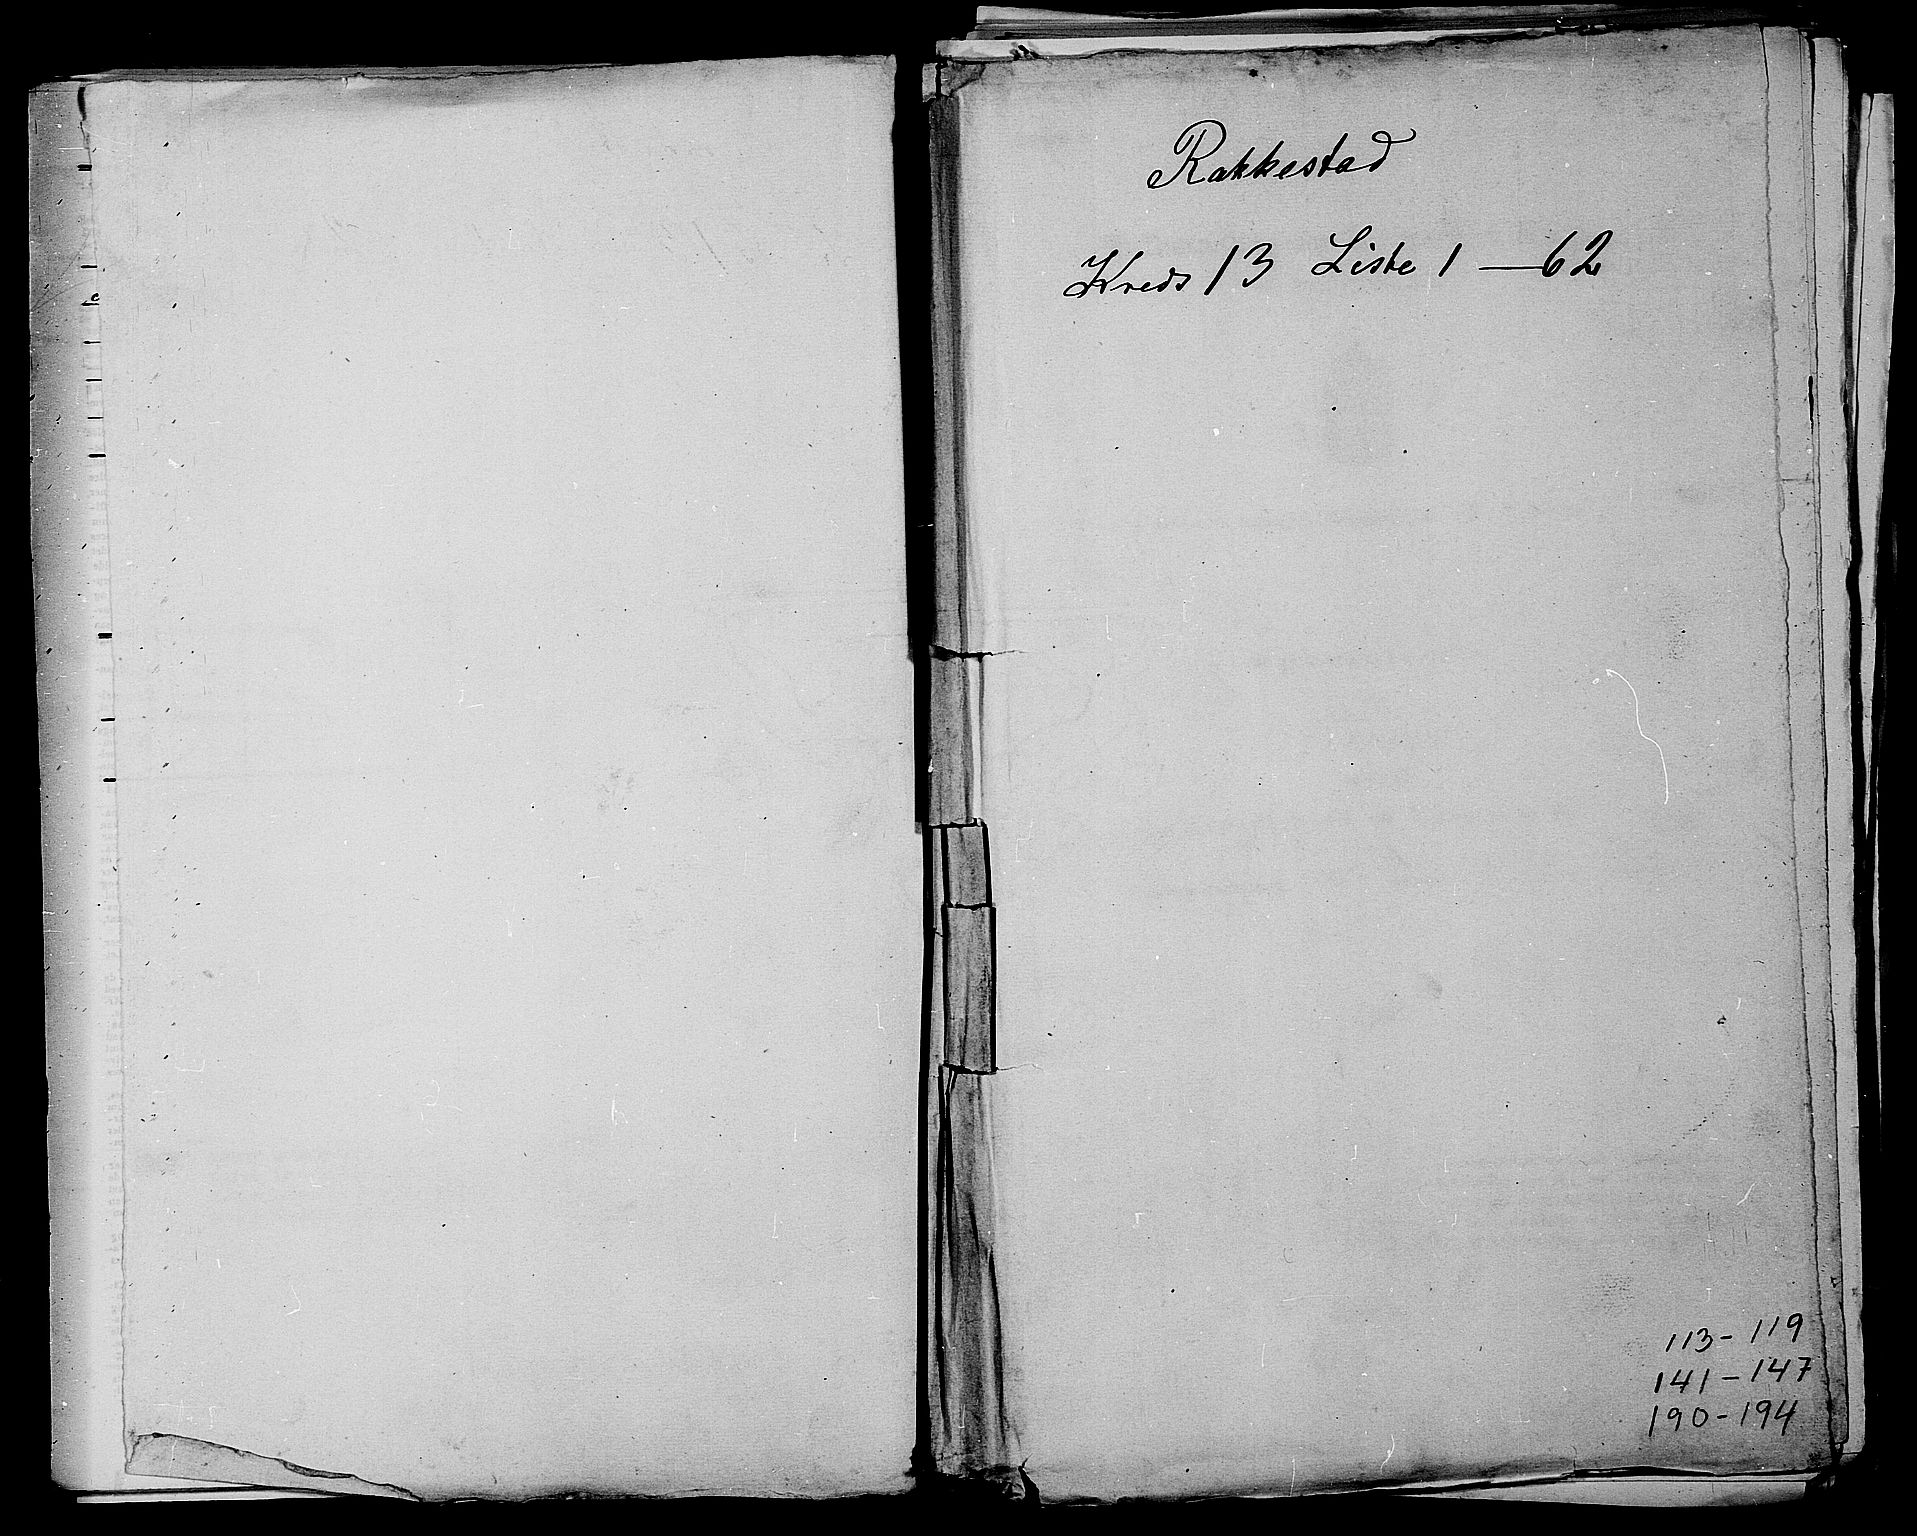 Rakkestad
Kreds 13 Liste 1 — 62
113 - 119
141 - 147
190 - 194